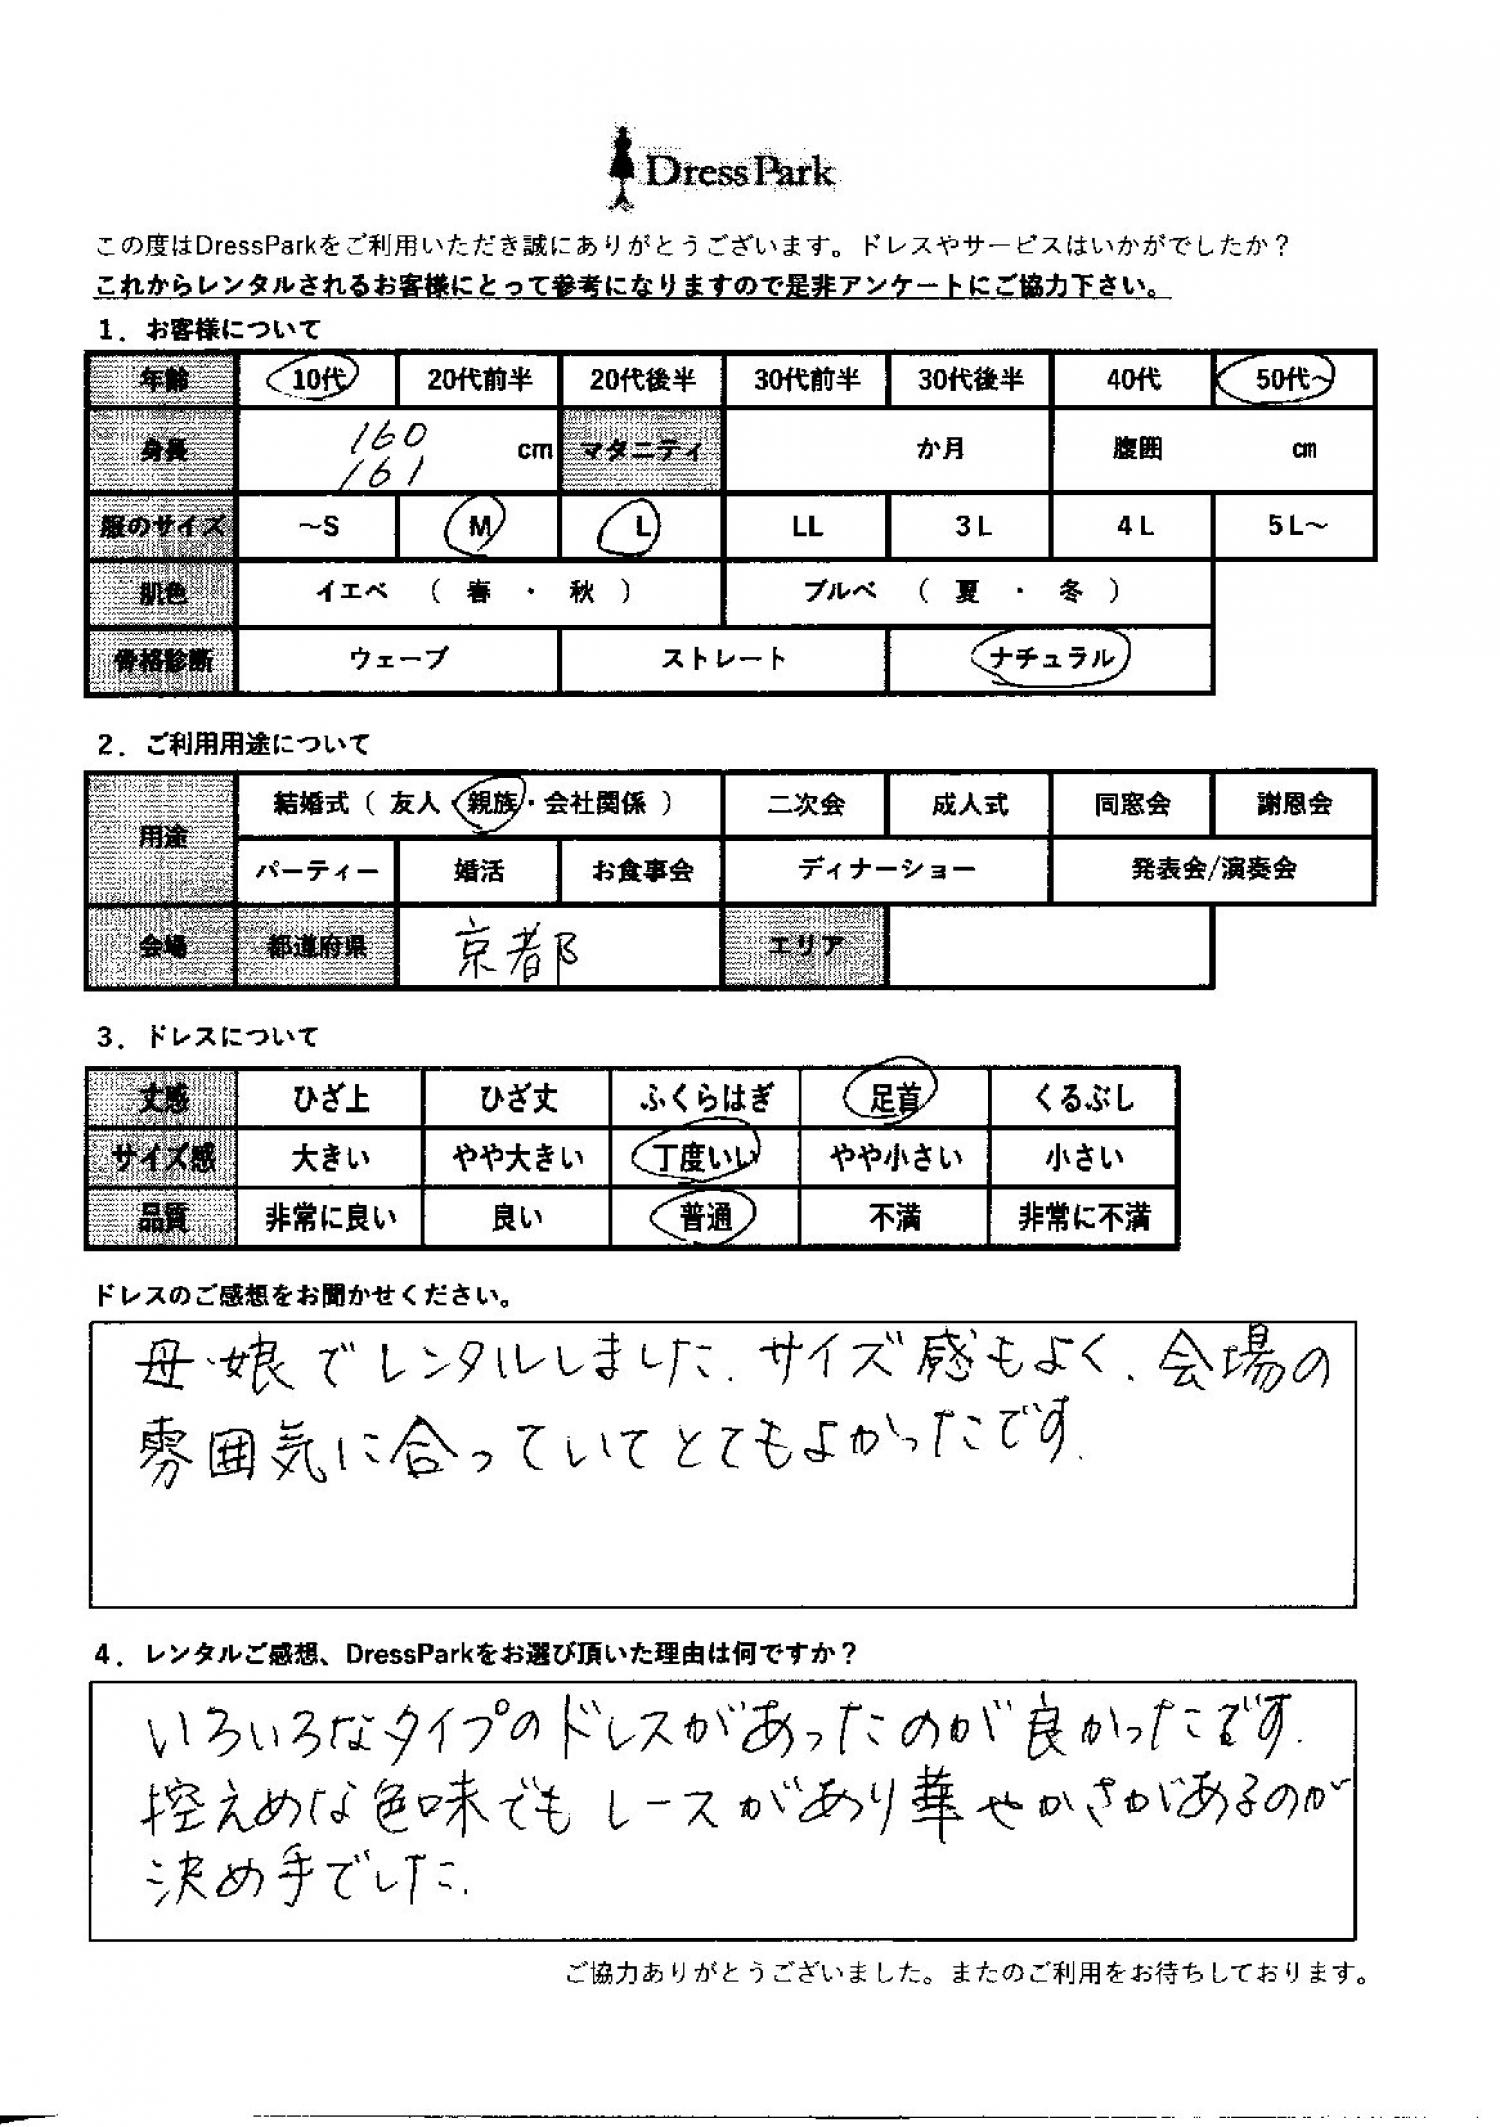 DressPark
この度はDressParkをご利用いただき誠にありがとうございます。ドレスやサービスはいかがでしたか？
これからレンタルされるお客様にとって参考になりますので是非アンケートにご協力下さい。
1．お客様について
年齢 10代 20代前半 20代後半 30代前半 30代後半 40代 50代~
身長 160 161 cm マタニティ か月 腹囲 cm
服のサイズ ～S M L LL 3L 4L 5L～
肌色 イエベ （ 春 ・ 秋 ） ブルベ （ 夏 ・ 冬 ）
骨格診断 ウェーブ ストレート ナチュラル
2．ご利用用途について
用途 結婚式（ 友人・親族・会社関係 ） 二次会 成人式 同窓会 謝恩会
パーティー 婚活 お食事会 ディナーショー 発表会/演奏会
会場 都道府県 京都 エリア
3．ドレスについて
丈感 ひざ上 ひざ丈 ふくらはぎ 足首 くるぶし
サイズ感 大きい やや大きい 丁度いい やや小さい 小さい
品質 非常に良い 良い 普通 不満 非常に不満
ドレスのご感想をお聞かせください。
母・娘でレンタルしました.サイズ感もよく、会場の
雰囲気に合っていてとてもよかったです.
4．レンタルご感想、DressParkをお選び頂いた理由は何ですか？
いろいろなタイプのドレスがあったのが良かったです.
控えめな色味でもレースがあり華やかさがあるのが
決め手でした.
ご協力ありがとうございました。またのご利用をお待ちしております。